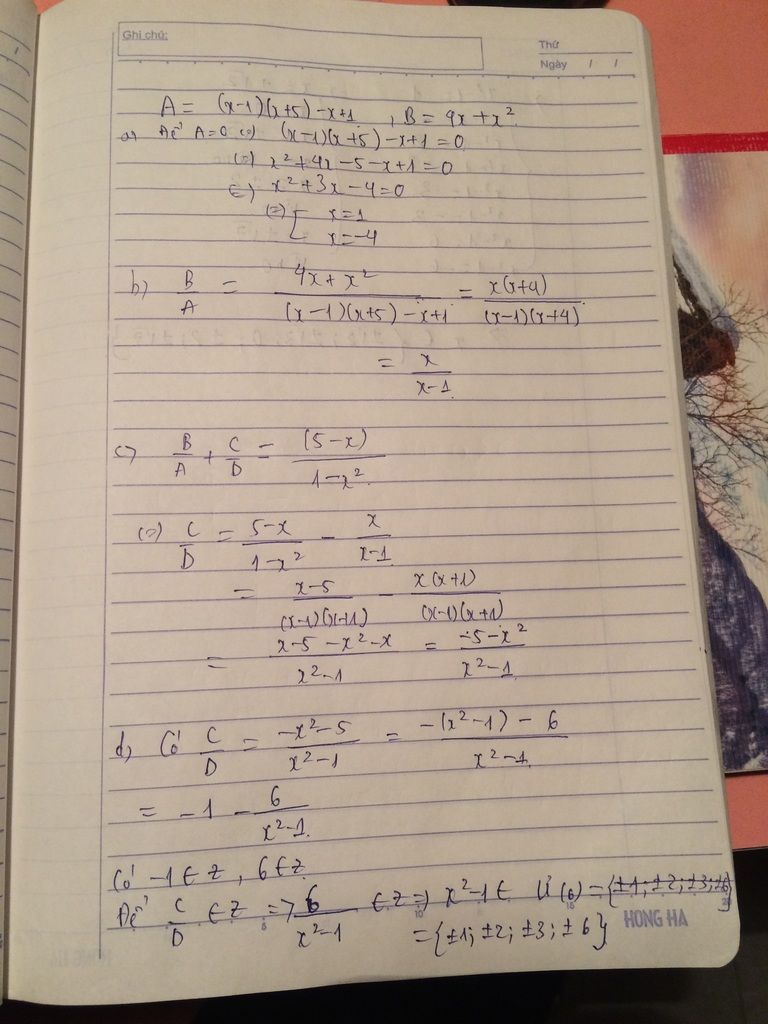 Ghi chú:
Thứ
Ngày / /
A = (x-1)(x+5) -x+1 , B = 4x + x²
a) Để A=0 (=) (x-1)(x+5) -x+1 = 0
(=) x²+4x-5-x+1=0
(=) x²+3x-4=0
(=) [ x=1
x=-4
b) B/A = 4x+x²/(x-1)(x+5)-x+1 = x(x+4)/(x-1)(x+4)
= x/x-1
c) B/A + C/D = (5-x)/1-x²
(=) C/D = 5-x/1-x² - x/x-1
= x-5/(x-1)(x+1) - x(x+1)/(x-1)(x+1)
= x-5-x²-x/x²-1 = -5-x²/x²-1
d, Có C/D = -x²-5/x²-1 = -(x²-1) - 6/x²-1
= -1 - 6/x²-1
Có -1 ∈ Z, 6 ∈ Z
Để C/D ∈ Z => 6/x²-1 ∈ Z => x²-1 ∈ Ư(6) = {±1; ±2; ±3; ±6}
= {±1; ±2; ±3; ±6}
HONG HA